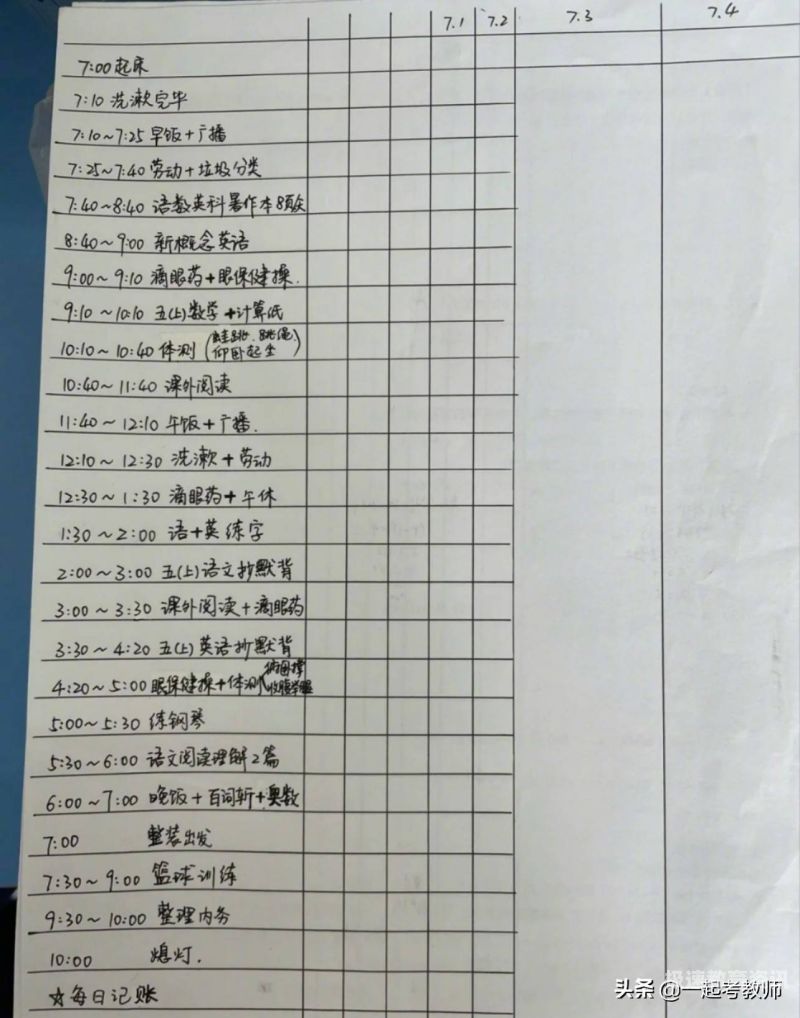 7.1 7.2 7.3 7.4
7:00 起床
7:10 洗漱完毕
7:10~7:25 早饭+广播
7:25~7:40 劳动+垃圾分类
7:40~8:40 语数英科暑作本8页/次
8:40~9:00 新概念英语
9:00~9:10 滴眼药+眼保健操.
9:10~10:10 五(上)数学+计算纸
10:10~10:40 体测(蛙跳.跳绳 仰卧起坐)
10:40~11:40 课外阅读
11:40~12:10 午饭+广播.
12:10~12:30 洗漱+劳动
12:30~1:30 滴眼药+午休
1:30~2:00 语+英练字
2:00~3:00 五(上)语文抄默背
3:00~3:30 课外阅读+滴眼药
3:30~4:20 五(上)英语抄默背
4:20~5:00 眼保健操+体测(俯卧撑
5:00~5:30 练钢琴
5:30~6:00 语文阅读理解2篇
6:00~7:00 晚饭+百词斩+奥数
7:00 整装出发
7:30~9:00 篮球训练
9:30~10:00 整理内务
10:00 熄灯.
☆每日记账
极速教育资讯
头条 @一起考教师